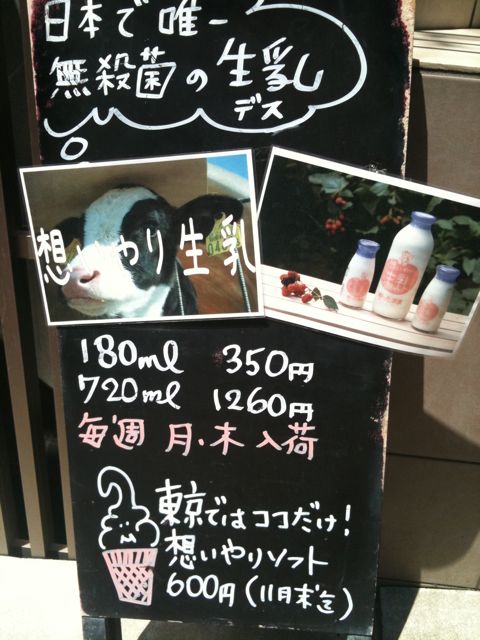 日本で唯一
無殺菌の生乳
デス
想いやり生乳
180ml 350円
720ml 1260円
毎週 月・木 入荷
東京ではココだけ!
想いやりソフト
600円(11月末迄)